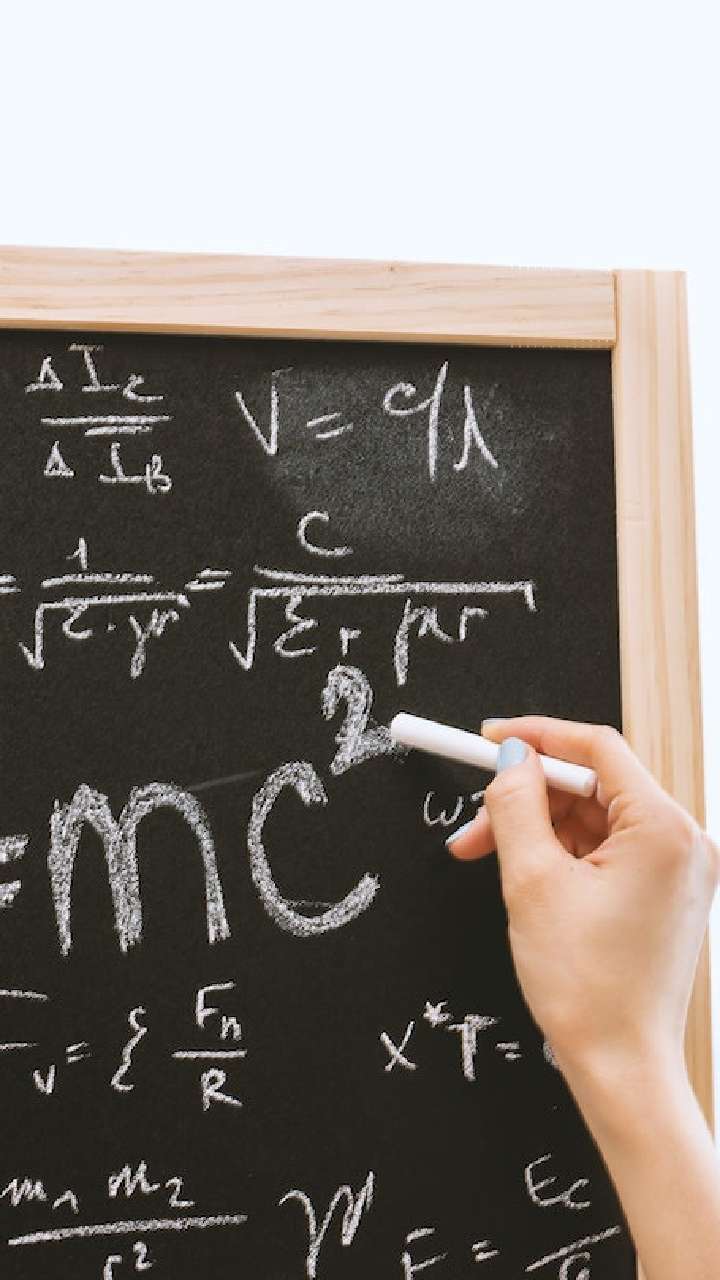 ΔI_C / ΔI_B
V = c/λ
= 1/√(ε·μ) = C/√(ε_r μ_r)
= mc²
ω =
v = { F_n / R
x*T =
m₁ m₂ / r²
F = E_C /